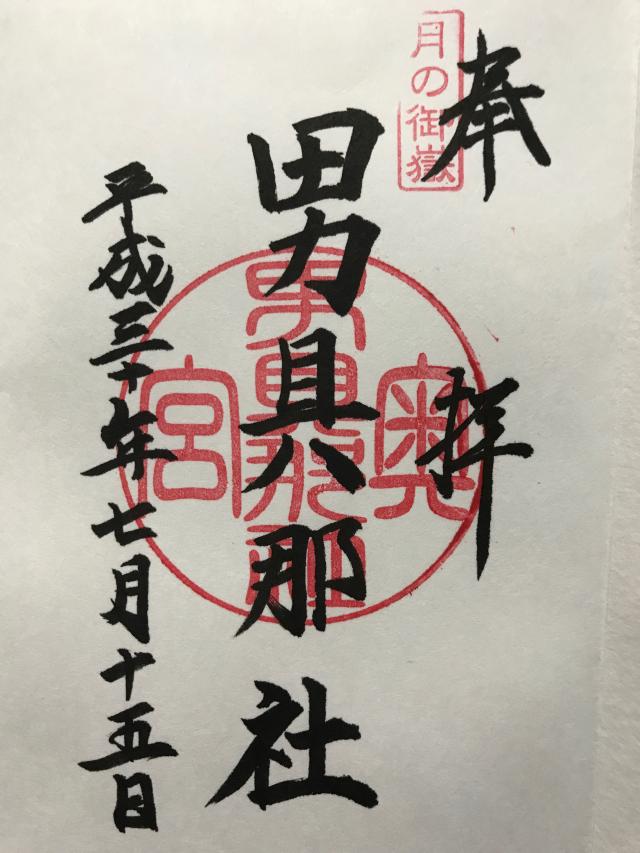 奉拝
月の御嶽
男具那社
奥
宮
平成三十年七月十五日